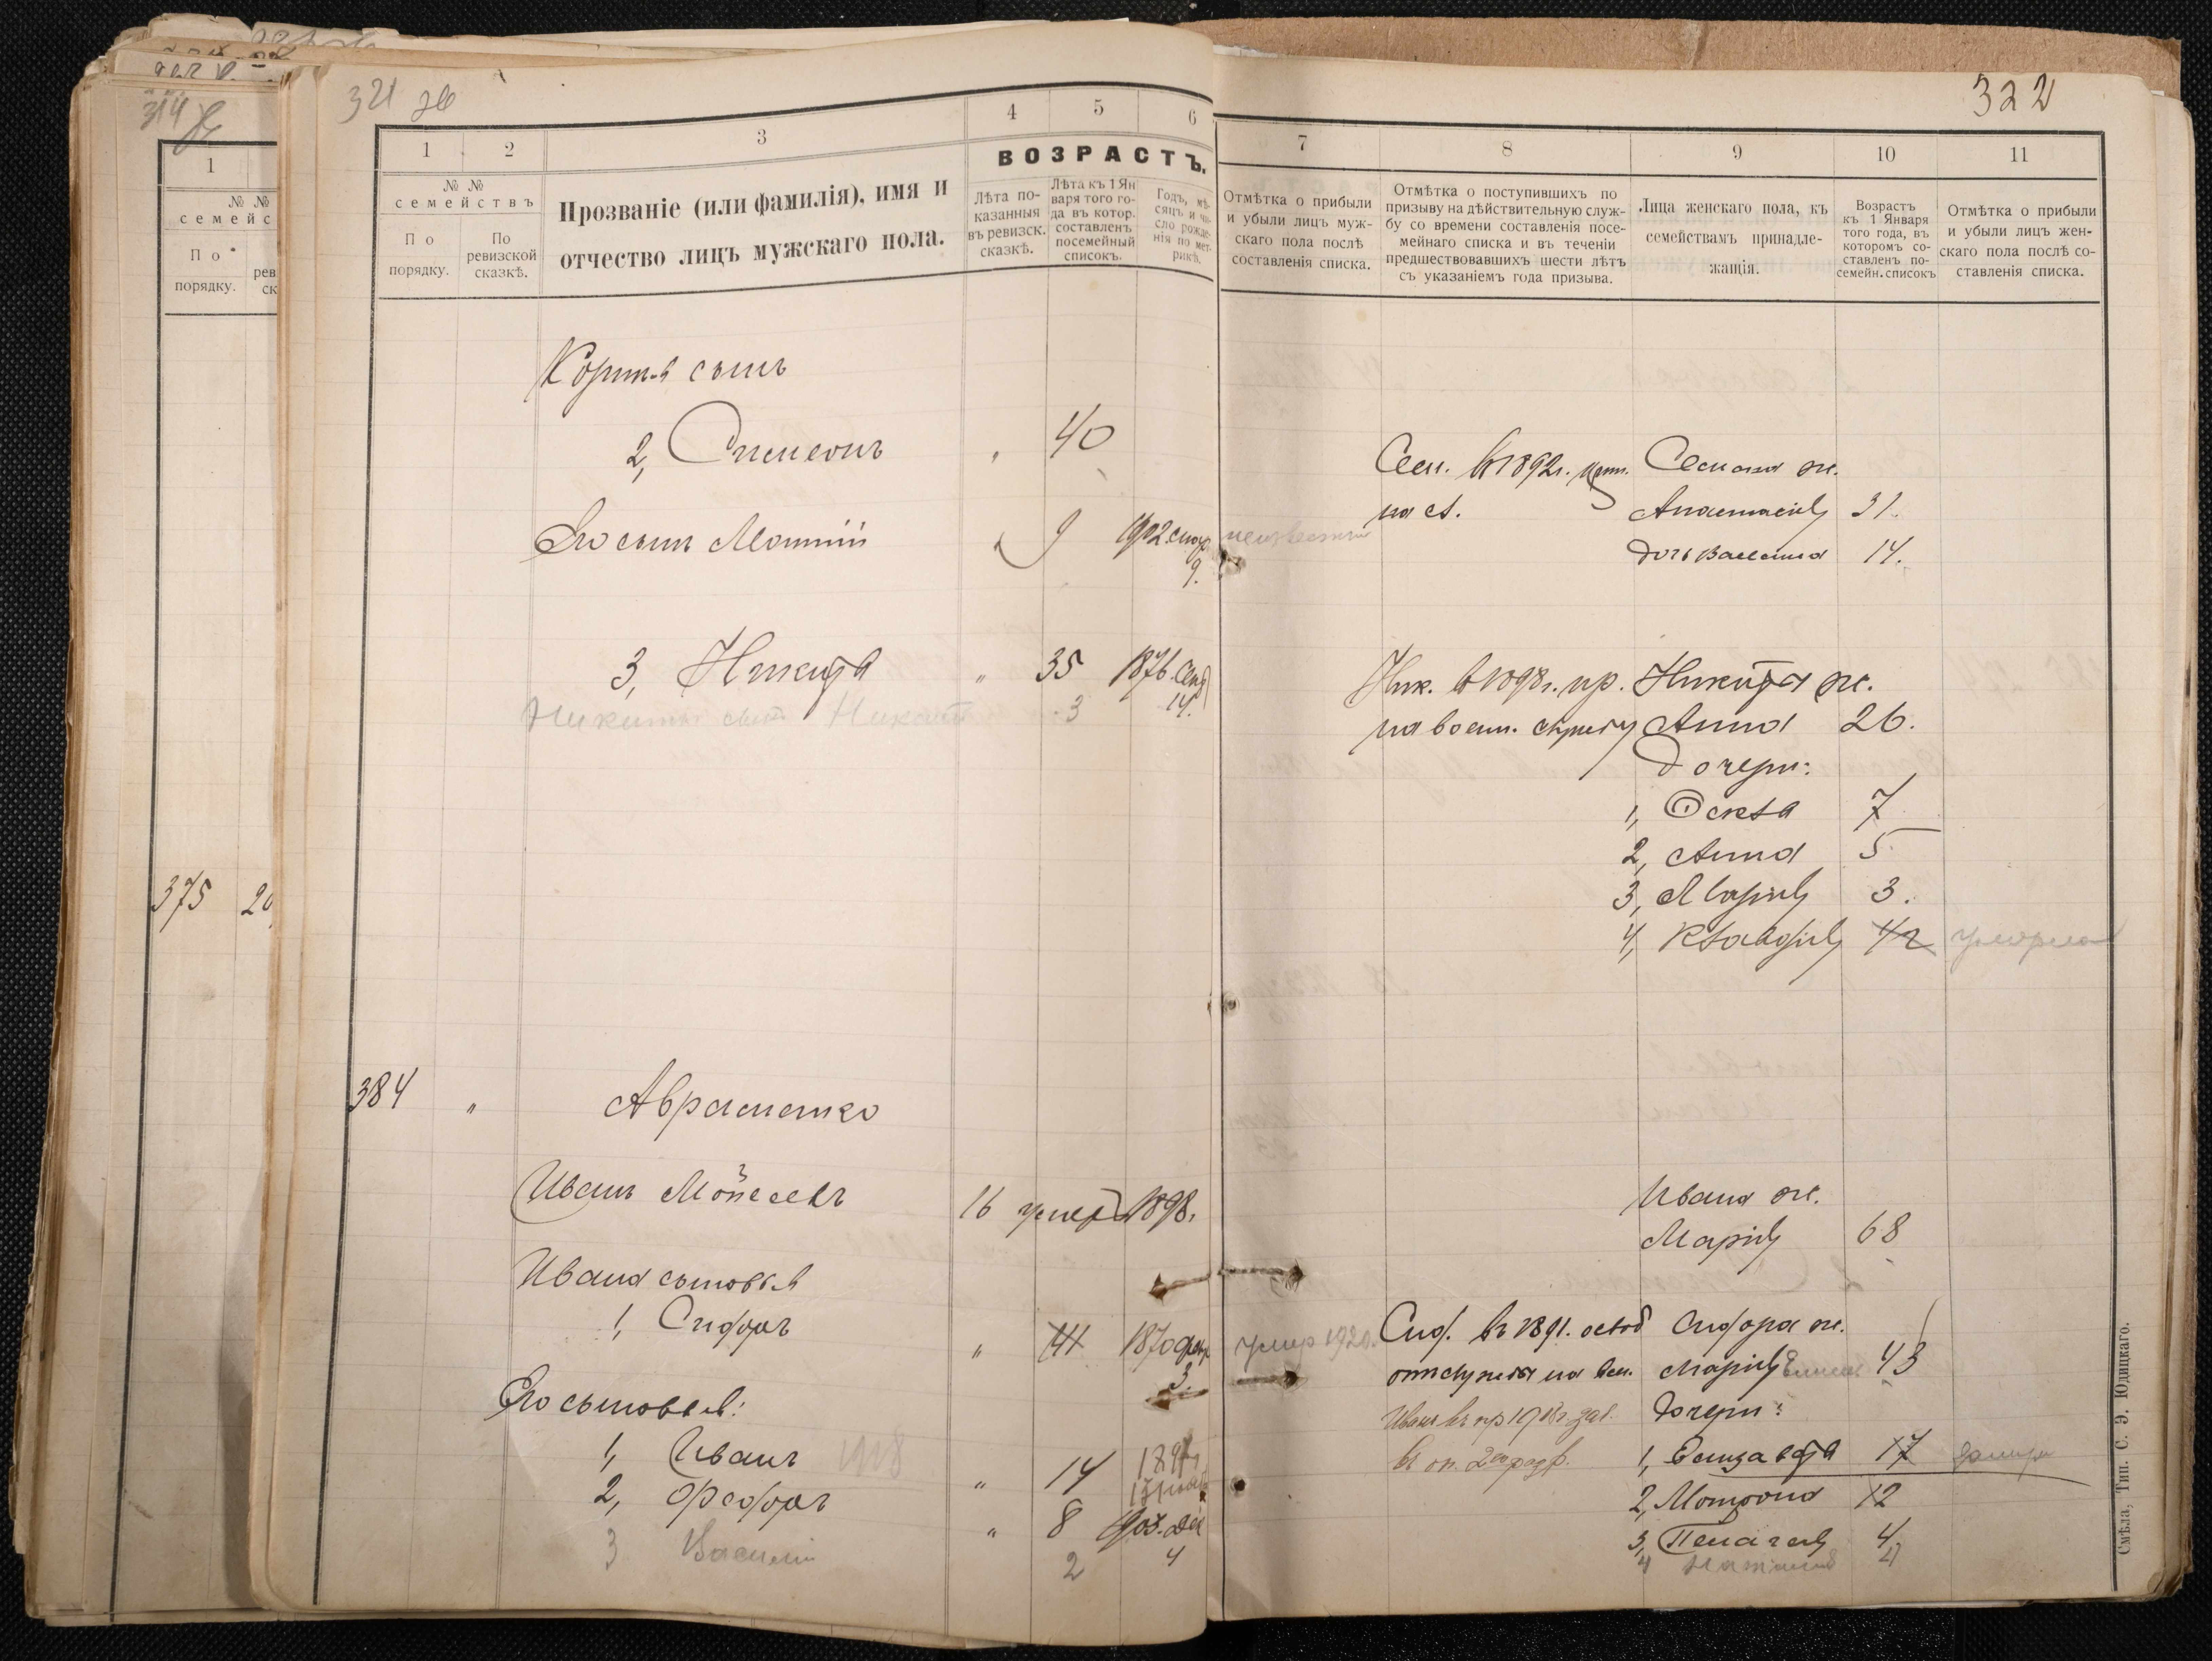 314
1
№ №
По
порядку.
375
321 об
1
2
3
4
5
6
№ №
семействъ
По
порядку.
По
ревизской
сказкѣ.
Прозваніе (или фамилія), имя и
отчество лицъ мужскаго пола.
ВОЗРАСТЪ.
Лѣта по-
казанныя
въ ревизск.
сказкѣ.
Лѣта къ 1 Ян
варя того го-
да въ котор.
составленъ
посемейный
списокъ.
Годъ, мѣ-
сяцъ и чи-
сло рожде-
нія по мет-
рикѣ.
сынъ
2, Симеонъ " 40
Его сынъ 9 1902
9.
3, Никита " 35 1876. Сен
Никиты сынъ 3 14.
384 " Авраменко
Иванъ Моисеевъ 16 умеръ 1898.
Ивана сыновья
1, Сидоръ " 41 1870 фев
3.
Его сыновья:
1, Иванъ 1918 " 14 1897
2, Ѳеодоръ " 8 903. Дек
3 Василій 2 4
322
7
8
9
10
11
Отмѣтка о прибыли
и убыли лицъ муж-
скаго пола послѣ
составленія списка.
Отмѣтка о поступившихъ по
призыву на дѣйствительную служ-
бу со времени составленія посе-
мейнаго списка и въ теченіи
предшествовавшихъ шести лѣтъ
съ указаніемъ года призыва.
Лица женскаго пола, къ
семействамъ принадле-
жащія.
Возрастъ
къ 1 Января
того года, въ
которомъ со-
ставленъ по-
семейн. списокъ
Отмѣтка о прибыли
и убыли лицъ жен-
скаго пола послѣ со-
ставленія списка.
Сем. въ 1892г. Семена ж.
на Анастасія 31.
неизвестно дочь 14.
Ник. въ 1898г. пр. Никиты ж.
на воен. службу Анна 26.
Дочери:
1, Ѳекла 7
2, Анна 5
3, Марія 3.
4, Клавдія умерла
Ивана ж.
Марія 68
умер 1920. Сид. въ 1891. освоб Сидора ж.
Марія 43
Иванъ въ пр 1918г Дочери:
1, Елизавета 17 замуж
2, Матрона 12
3, Пелагея 4
4 Наталія
Смѣла, Тип. С. Э. Юдицкаго.